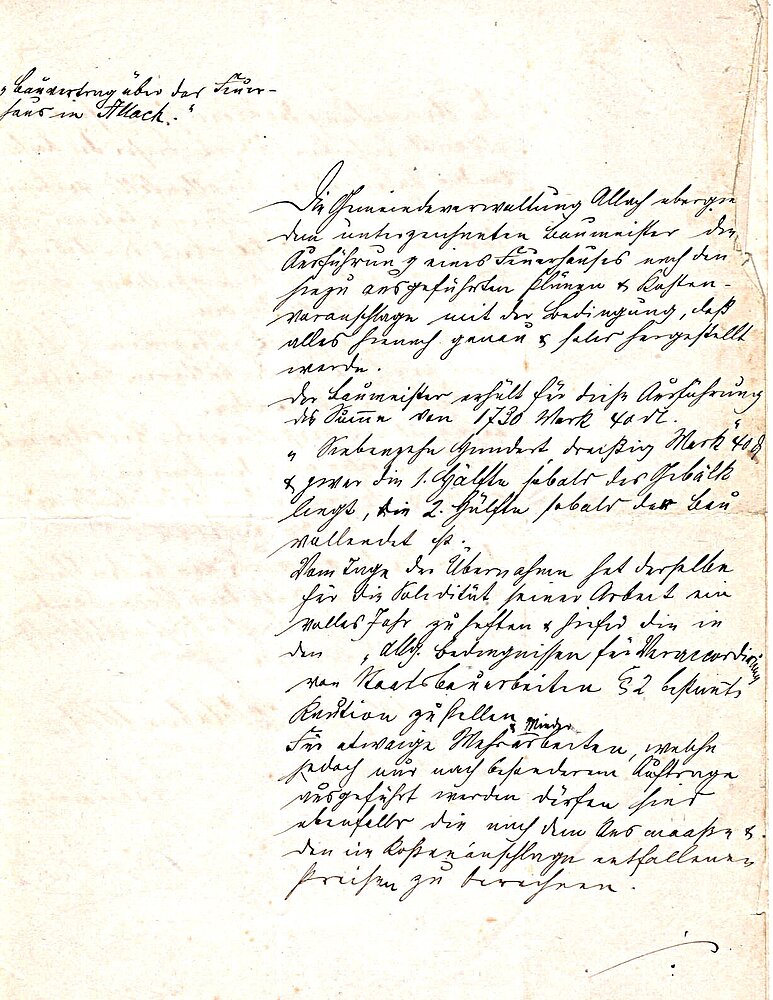 "Bauvertrag über das Feuer-
haus in Allach."
Die Gemeindeverwaltung Allach übergie
dem unterzeichneten Baumeister die
Ausführung eines Feuerhauses nach den
hiezu ausgeführten Plänen & Kosten-
voranschlage mit der Bedingung, daß
alles hienach genau & solid hergestellt
werde.
Der Baumeister erhält für diese Ausführung
die Summe von 1730 Mark 40 dl.
„ Siebenzehn Hundert dreißig Mark" 40 ₰
& zwar die 1. Hälfte sobald das Gebälk
liegt, die 2. Hälfte sobald der Bau
vollendet ist.
Vom Tage der Übernahme hat derselbe
für die Solidität seiner Arbeit ein
volles Jahr zu haften & hiefür die in
den „ allg. Bedingnissen für Veraccordirung
von Staatsbauarbeiten § 2 bestimmte
Kaution zu stellen.
Für etwaige Mehr & Minderarbeiten, welche
jedoch nur nach besonderem Auftrage
ausgeführt werden dürfen sind
ebenfalls die nach dem Ausmaaße &
den im Kostenanschlage entfallenen
Preisen zu berechnen.